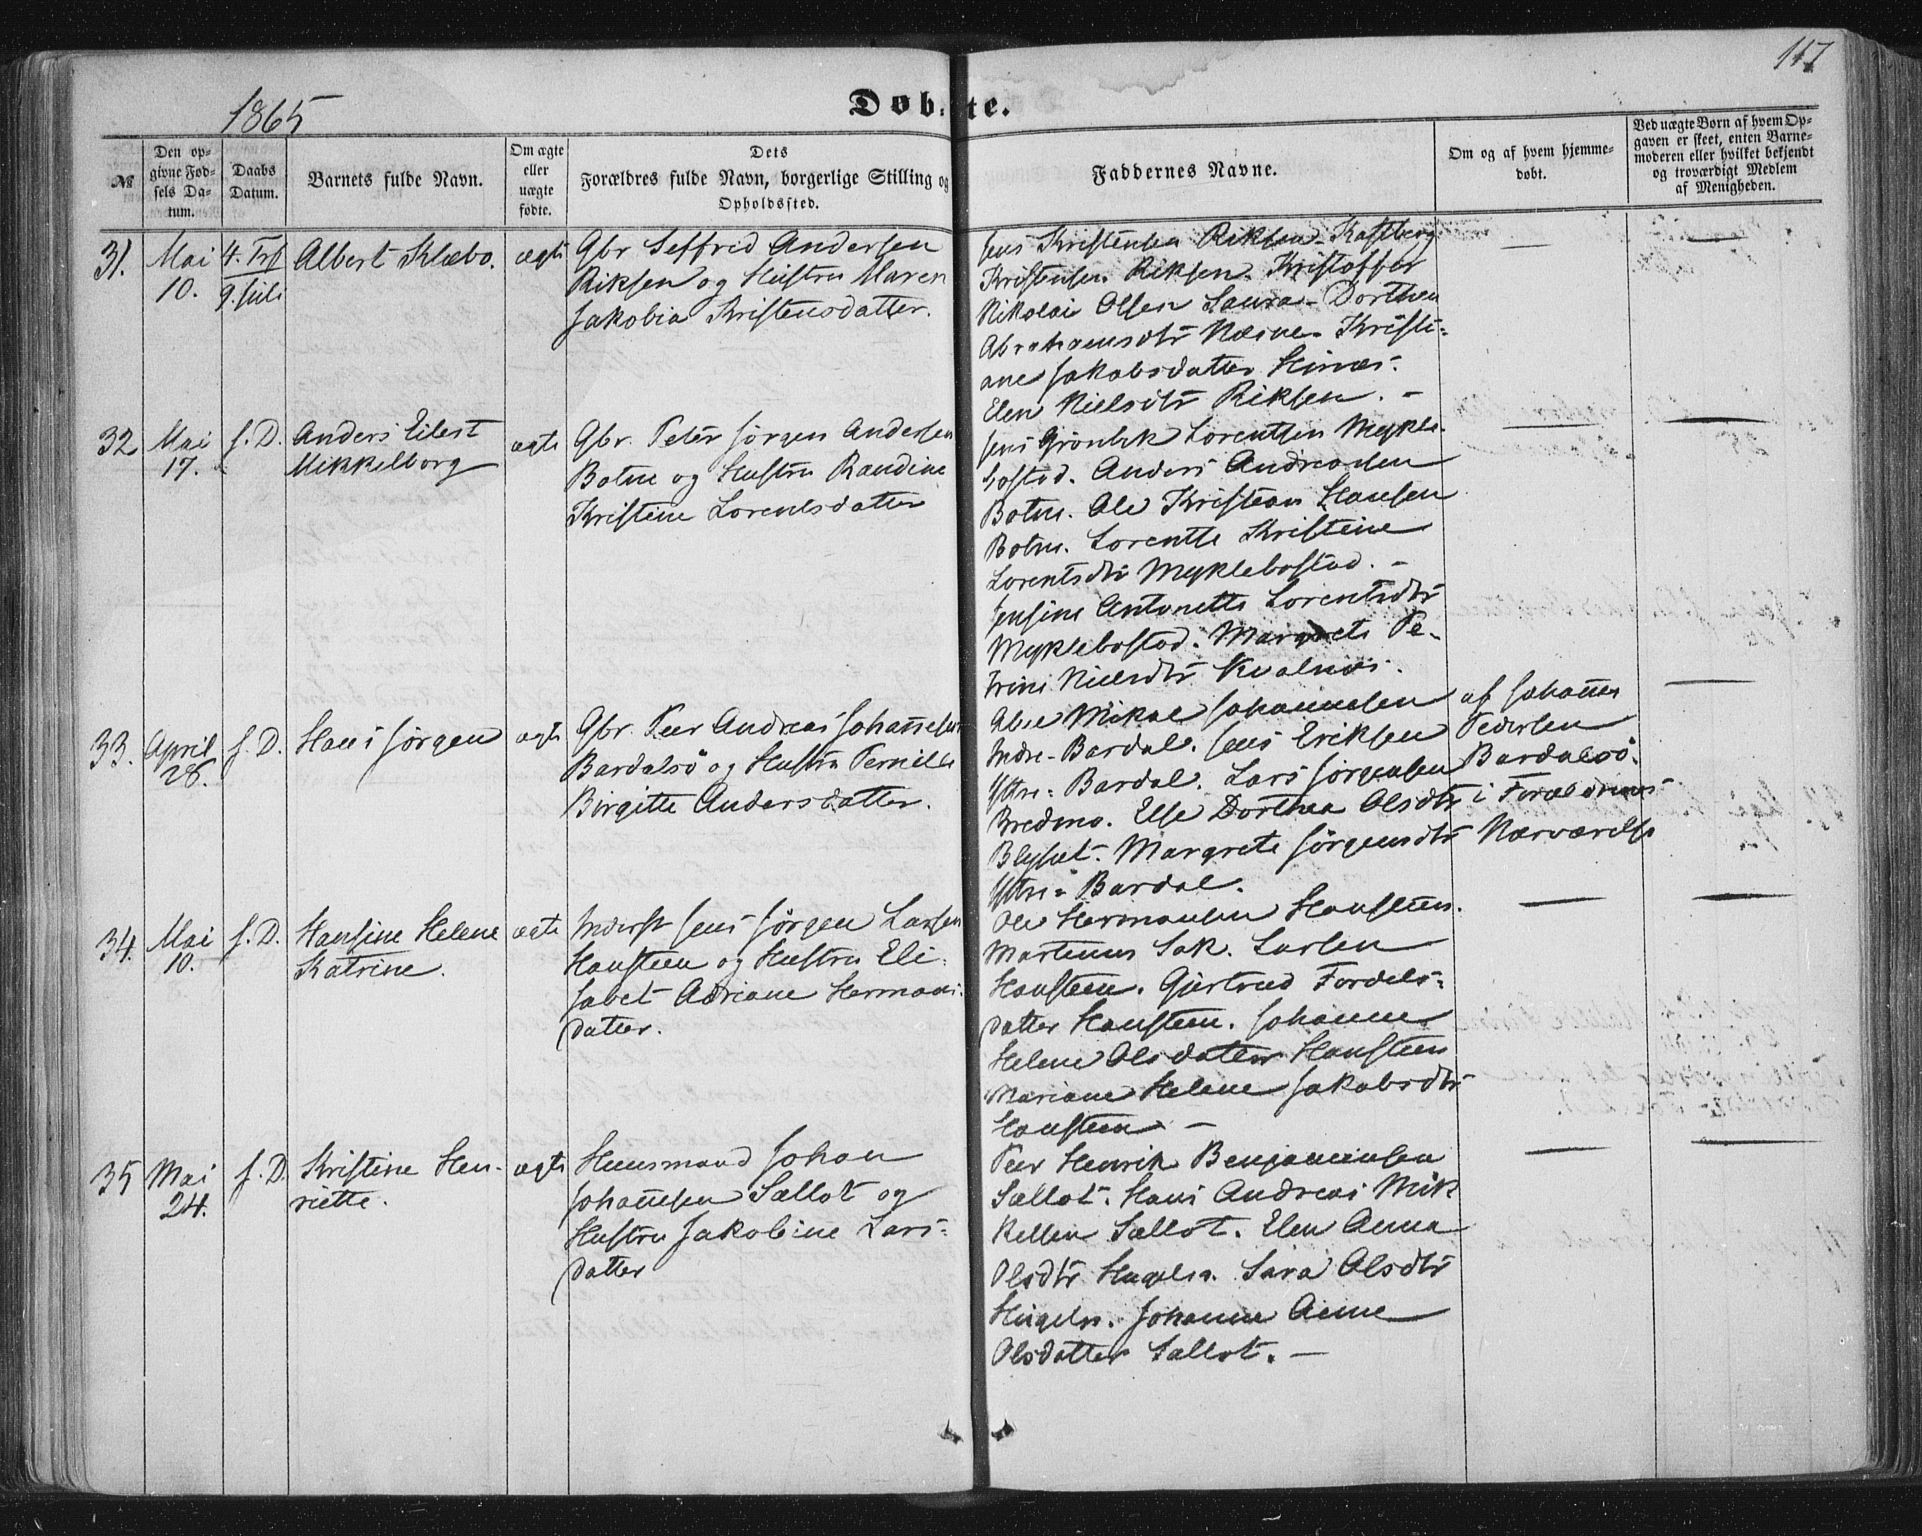 117
1865
Døbte.
№
Den opgivne Fødsels Datum.
Daabs Datum.
Barnets fulde Navn.
Om ægte eller uægte fødte.
Dets Forældres fulde Navn, borgerlige Stilling og Opholdssted.
Faddernes Navne.
Om og af hvem hjemmedøbt.
Ved uægte Børn af hvem Opgaven er skeet, enten Barnemoderen eller hvilket bekjendt og troværdigt Medlem af Menigheden.
31. Mai 10. 4. Trf 9. Juli
Albert Klæbo.
ægte
Gbr Seffred Andersen
Riksen og Hustru Maren
Jakobia Kristensdatter.
Jens Kristensen Riksen
Kristensen Riksen. Kristoffer
Nikolai Olsen Laura Dorthea
Abrahamsdtr Næsne. Kristi-
ane Jakobsdatter
Elen Nielsdtr Riksen. -
32 Mai 17. f. D.
Anders Eilert
Mikkelborg
ægte
Gbr. Peter Jørgen Andersen
Botne og Hustru Randine
Kristine Lorentsdatter
Jens Grønbek Lorentsen Mykle-
bostad. Anders Andreasen
Botne. Ole Kristean Hansen
Botne. Lorentse Kristine
Lorentsdtr Myklebostad. -
Jensine Antonette Lorentsdtr
Myklebostad. Margrete Pe-
trine Nielsdtr Kvalnæs.
33. April 28. f. D.
Hans Jørgen
ægte
Gbr. Peer Andreas Johannesen
Bardalsø og Hustru Pernille
Birgitte Andersdatter.
Abel Mikal Johannesen
Indre-Bardal. Jens Eriksen
Ytre-Bardal. Lars Jørgensen
Bredmo. Else Dorthea Olsdtr
Margrete Jørgensdtr
Ytre-Bardal.
af Johannes
Pedersen
Bardalsø.
i Forældrenes
Nærværelse
34. Mai 10. f. D.
Hansine Helene
Katrine.
ægte
Inderst Jens Jørgen Larsen
Hansteen og Hustru Eli-
sabet Adriane Hermans-
datter.
Ole Hermansen Hansteen.
Martinus Sak. Larsen
Hansteen. Gjertrud Fordels-
datter Hansteen. Johanne
Helene Olsdatter Hansteen
Mariane Helene Jakobsdtr
Hansteen -
35 Mai 24. f. D.
Kristine Hen-
riette.
ægte
Huusmand Johan
Johannesen Sællot og
Hustru Jakobine Lars-
datter
Peer Henrik Benjaminsen
Sællot. Hans Andreas Mik-
kelsen Sællot. Elen Anna
Olsdtr Hugeln. Sara Olsdtr
Hugeln. Johanne Anne
Olsdatter Sællot. -